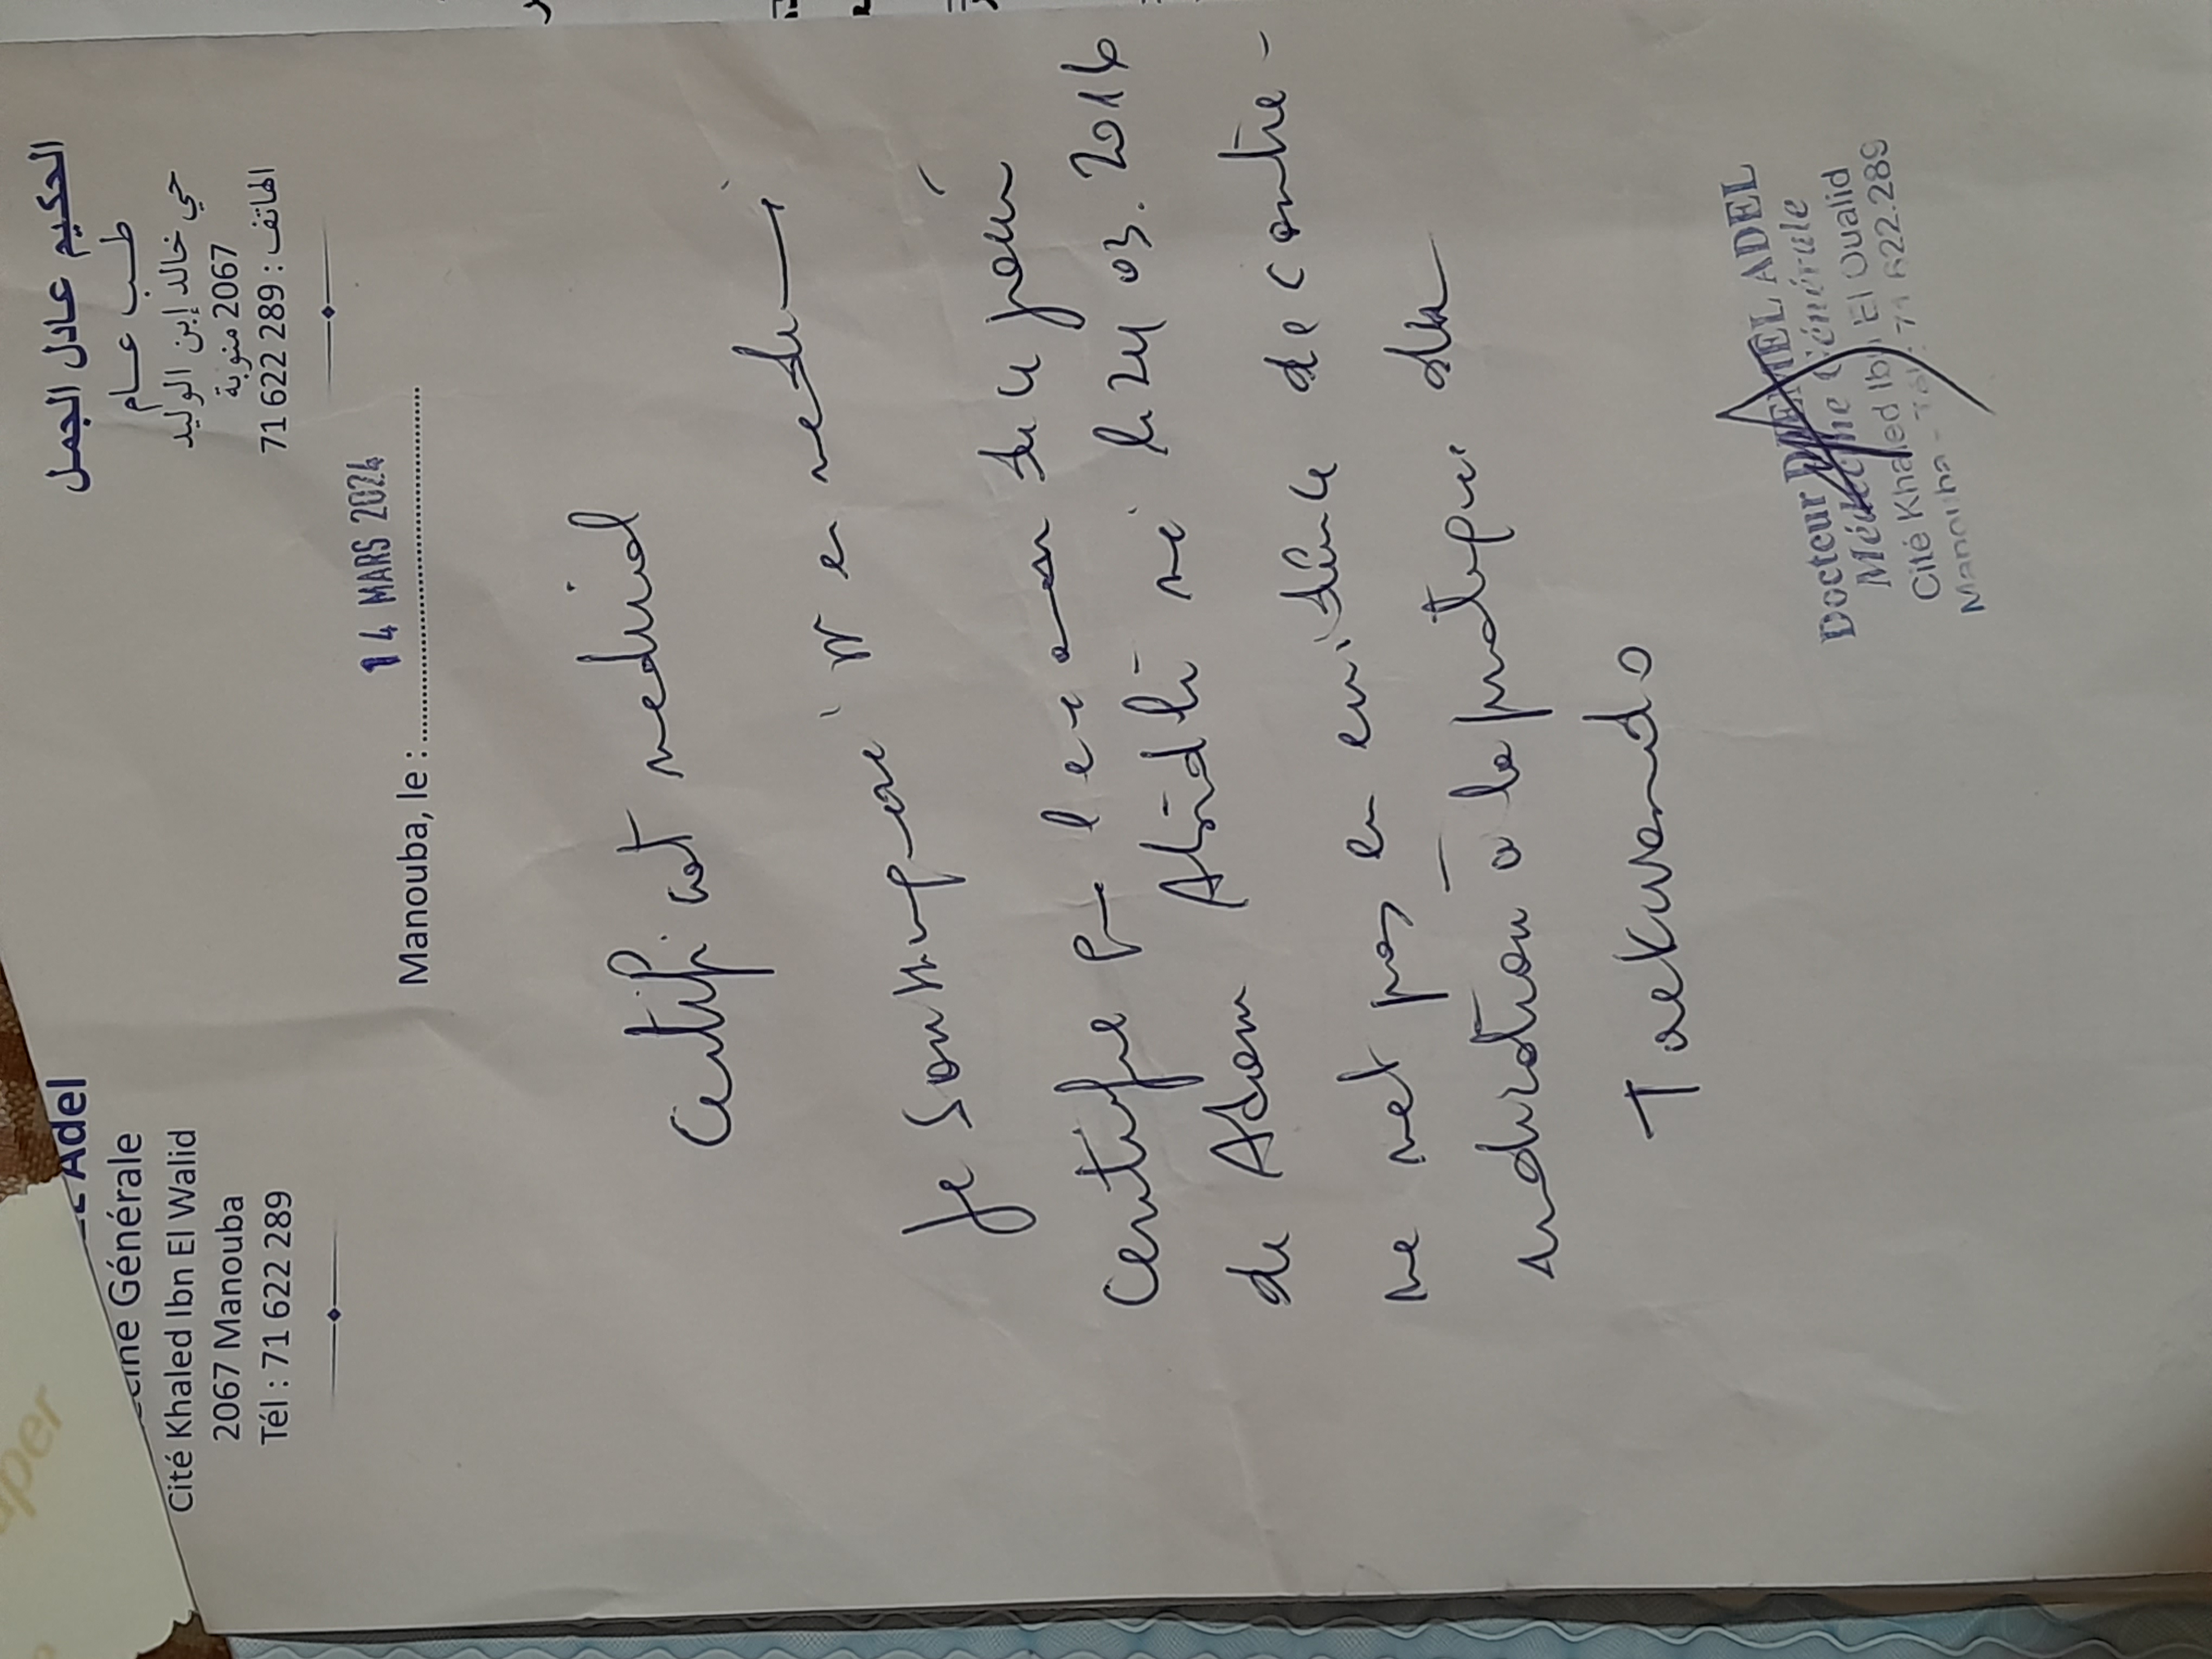 Adel
Médecine Générale
Cité Khaled Ibn El Walid
2067 Manouba
Tél : 71 622 289
الحكيم عادل الجمل
طب عام
حي خالد إبن الوليد
2067 منوبة
الهاتف : 71 622 289
Manouba, le : 14 MARS 2024
Certificat medical
Je soussigné
Certifie que l'examen du jeune
de Adem Abidli né le 24 03. 2016
ne met pas en évidence de contre-
indication à la pratique du
Taekwando
Docteur DJEMEL ADEL
Médecine Générale
Cité Khaled Ibn El Oualid
Manouba - Tél : 71 622.289
per